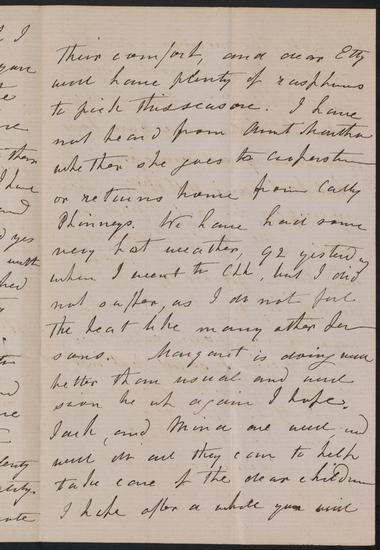 their comfort, and dear Etty
will have plenty of raspberries
to pick this season. I have
not heard from Aunt Martha
whether she goes to Cooperstown
or returns home from Cally
Phinneys. We have had some
very hot weather, 92 yesterday
when I went to Chh, but I did
not suffer, as I do not feel
the heat like many other per
sons. Margaret is doing well
better than usual and will
soon be up again I hope.
Jack, and Mina are well and
will do all they can to help
take care of the dear children
I hope after a while you will